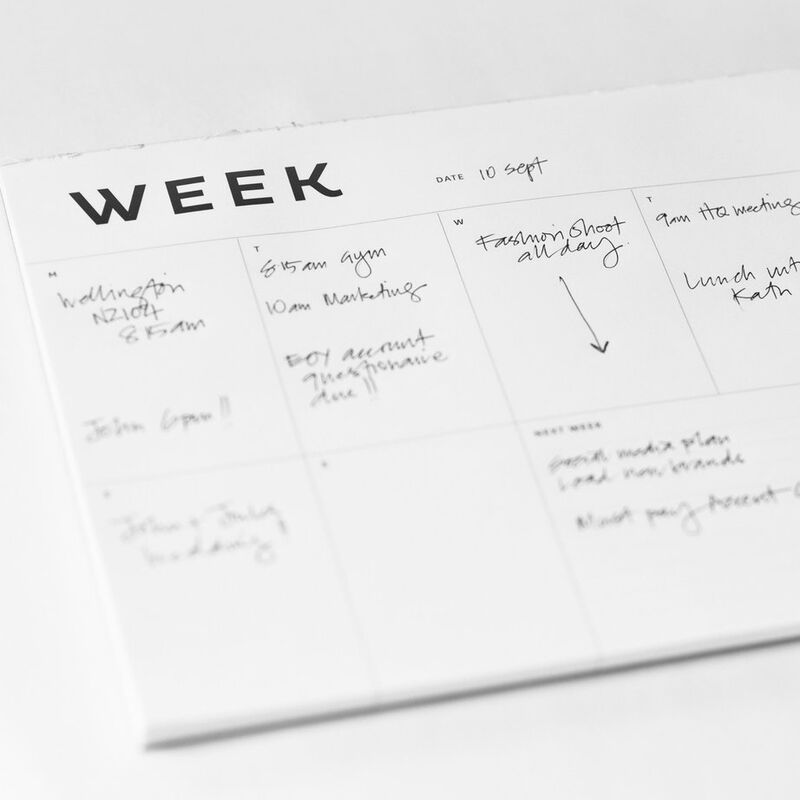 WEEK
DATE 10 Sept
M
Wellington
NZ104
8:15am
John 6pm!!
T
8:15am Gym
10am Marketing
EOY account
questionaire
due!!
W
Fashion Shoot
all day.
T
9am HQ meeting
Lunch
Kath
S
John + Judy
wedding
S
NEXT WEEK
Social media plan
Load new brands
Must pay Accent